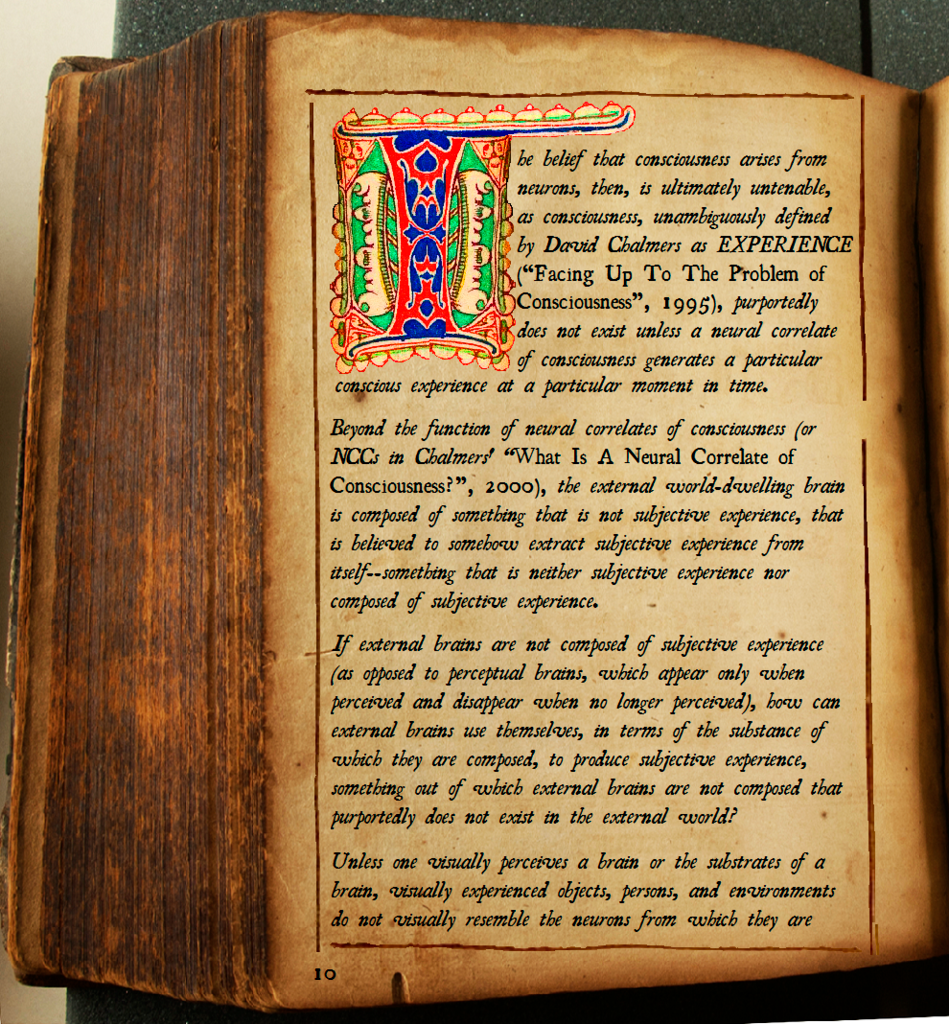 The belief that consciousness arises from
neurons, then, is ultimately untenable,
as consciousness, unambiguously defined
by David Chalmers as EXPERIENCE
(“Facing Up To The Problem of
Consciousness”, 1995), purportedly
does not exist unless a neural correlate
of consciousness generates a particular
conscious experience at a particular moment in time.
Beyond the function of neural correlates of consciousness (or
NCCs in Chalmers' “What Is A Neural Correlate of
Consciousness?”, 2000), the external world-dwelling brain
is composed of something that is not subjective experience, that
is believed to somehow extract subjective experience from
itself--something that is neither subjective experience nor
composed of subjective experience.
If external brains are not composed of subjective experience
(as opposed to perceptual brains, which appear only when
perceived and disappear when no longer perceived), how can
external brains use themselves, in terms of the substance of
which they are composed, to produce subjective experience,
something out of which external brains are not composed that
purportedly does not exist in the external world?
Unless one visually perceives a brain or the substrates of a
brain, visually experienced objects, persons, and environments
do not visually resemble the neurons from which they are
10